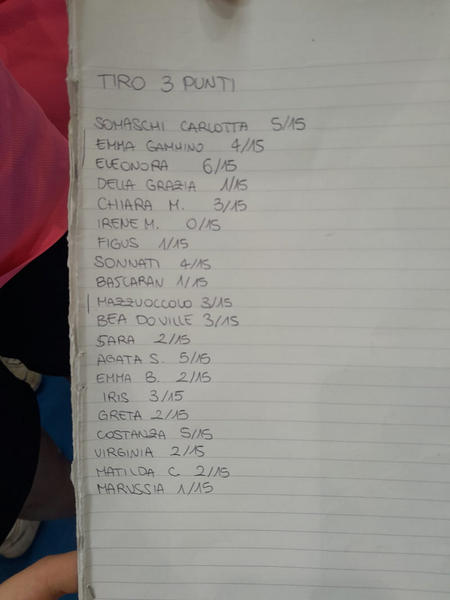 TIRO 3 PUNTI
SOMASCHI CARLOTTA 5/15
EMMA GAMMINO 4/15
ELEONORA 6/15
DELLA GRAZIA 1/15
CHIARA M. 3/15
IRENE M. 0/15
FIGUS 1/15
SONNATI 4/15
BASCARAN 1/15
MAZZUOCCOLO 3/15
BEA DOVILLE 3/15
SARA 2/15
AGATA S. 5/15
EMMA B. 2/15
IRIS 3/15
GRETA 2/15
COSTANZA 5/15
VIRGINIA 2/15
MATILDA C 2/15
MARUSSIA 1/15